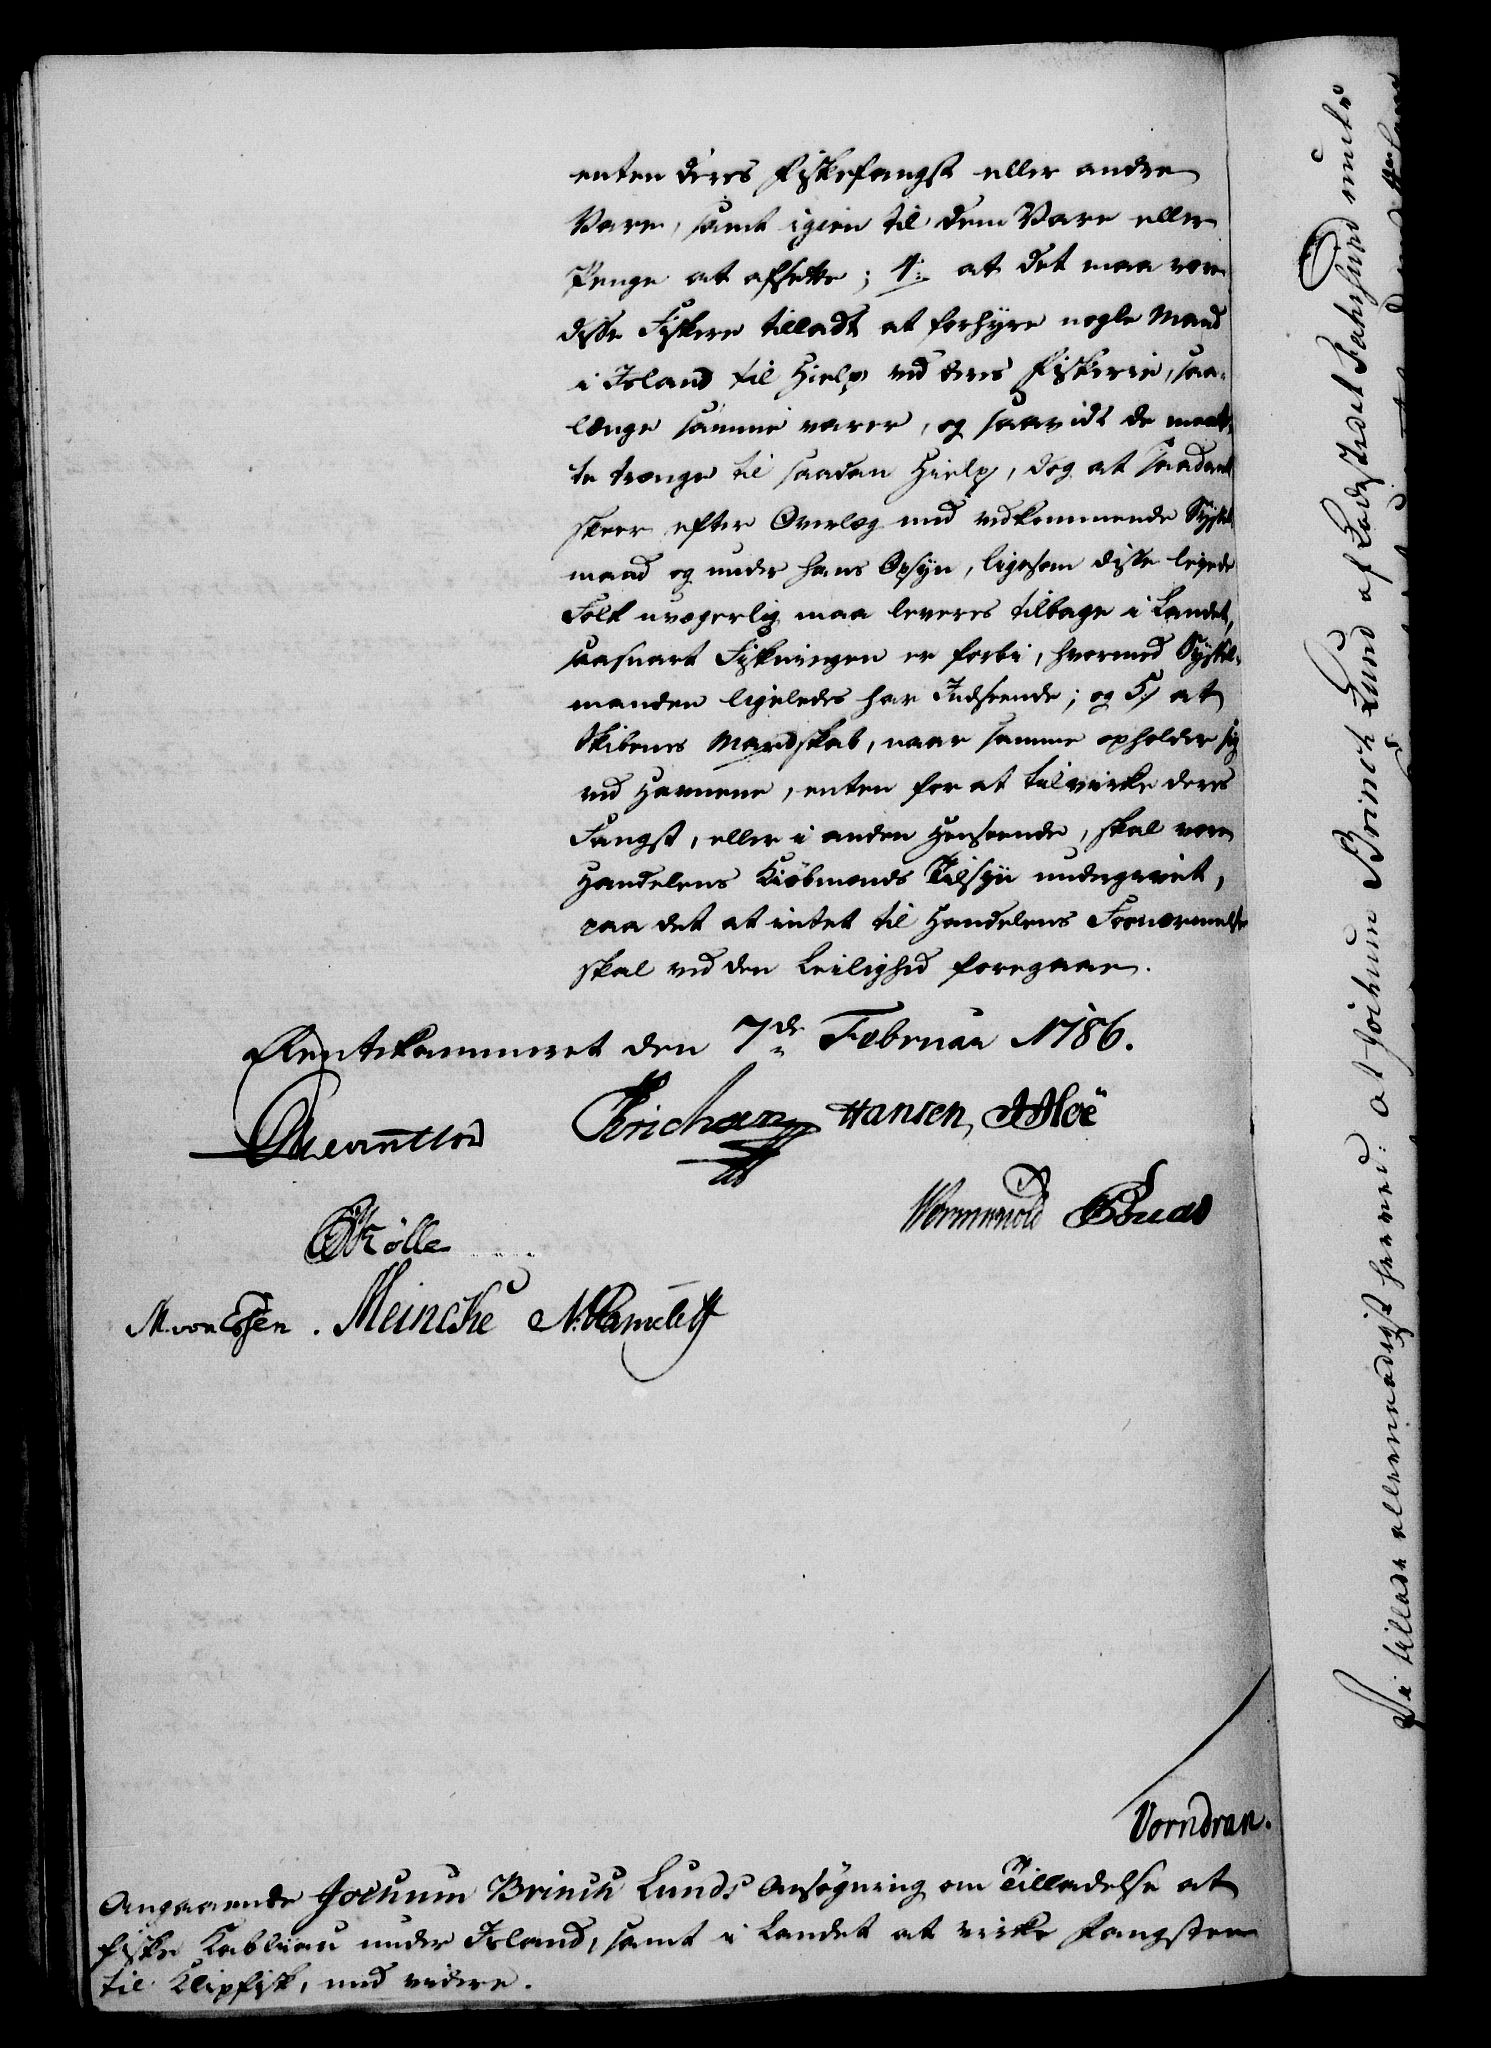 enten deres Fiskefangst eller andre
Vare, samt igien til dem Vare eller
Penge at afsette; 4. at det maa være
disse Fiskere tilladt at forhyre nogle Mand
i Island til Hielp ved deres Fiskerie, saa-
længe samme varer, og saavidt de maat-
te trænge til saadan Hielp, dog at saadant
skeer efter Overlæg med vedkommende Syssel
mand og under hans Opsyn, ligesom disse leyede
Folk uvægerlig maa leveres tilbage i Landet,
saasnart Fiskningen er forbi, hvormed Syssel-
manden ligeledes har Indseende; og 5) at
Skibenes Mandskab, naar samme opholder sig
ved Havnene, enten for at tilvirke deres
Fangst, eller i anden Henseende, skal være
Handelens Kiöbmands Tilsyn undergivet,
paa det at intet til Handelens Fornærmelse
skal ved den Leilighed foregaae.
Rentekammeret den 7de Februar 1786.
Erichsen Hansen, AHoë
Wormskiold
Kölle
M. von Essen. Meincke
Vorndran.
Angaaende Jochum Brinch Lunds Ansøgning om Tilladelse at
fiske Kabliau under Island, samt i Landet at virke Fangsten
til Klipfisk, med videre.
Vi tillade allernaadigst herved: at Jochum Brinch Lund af Ladestedet Farsund